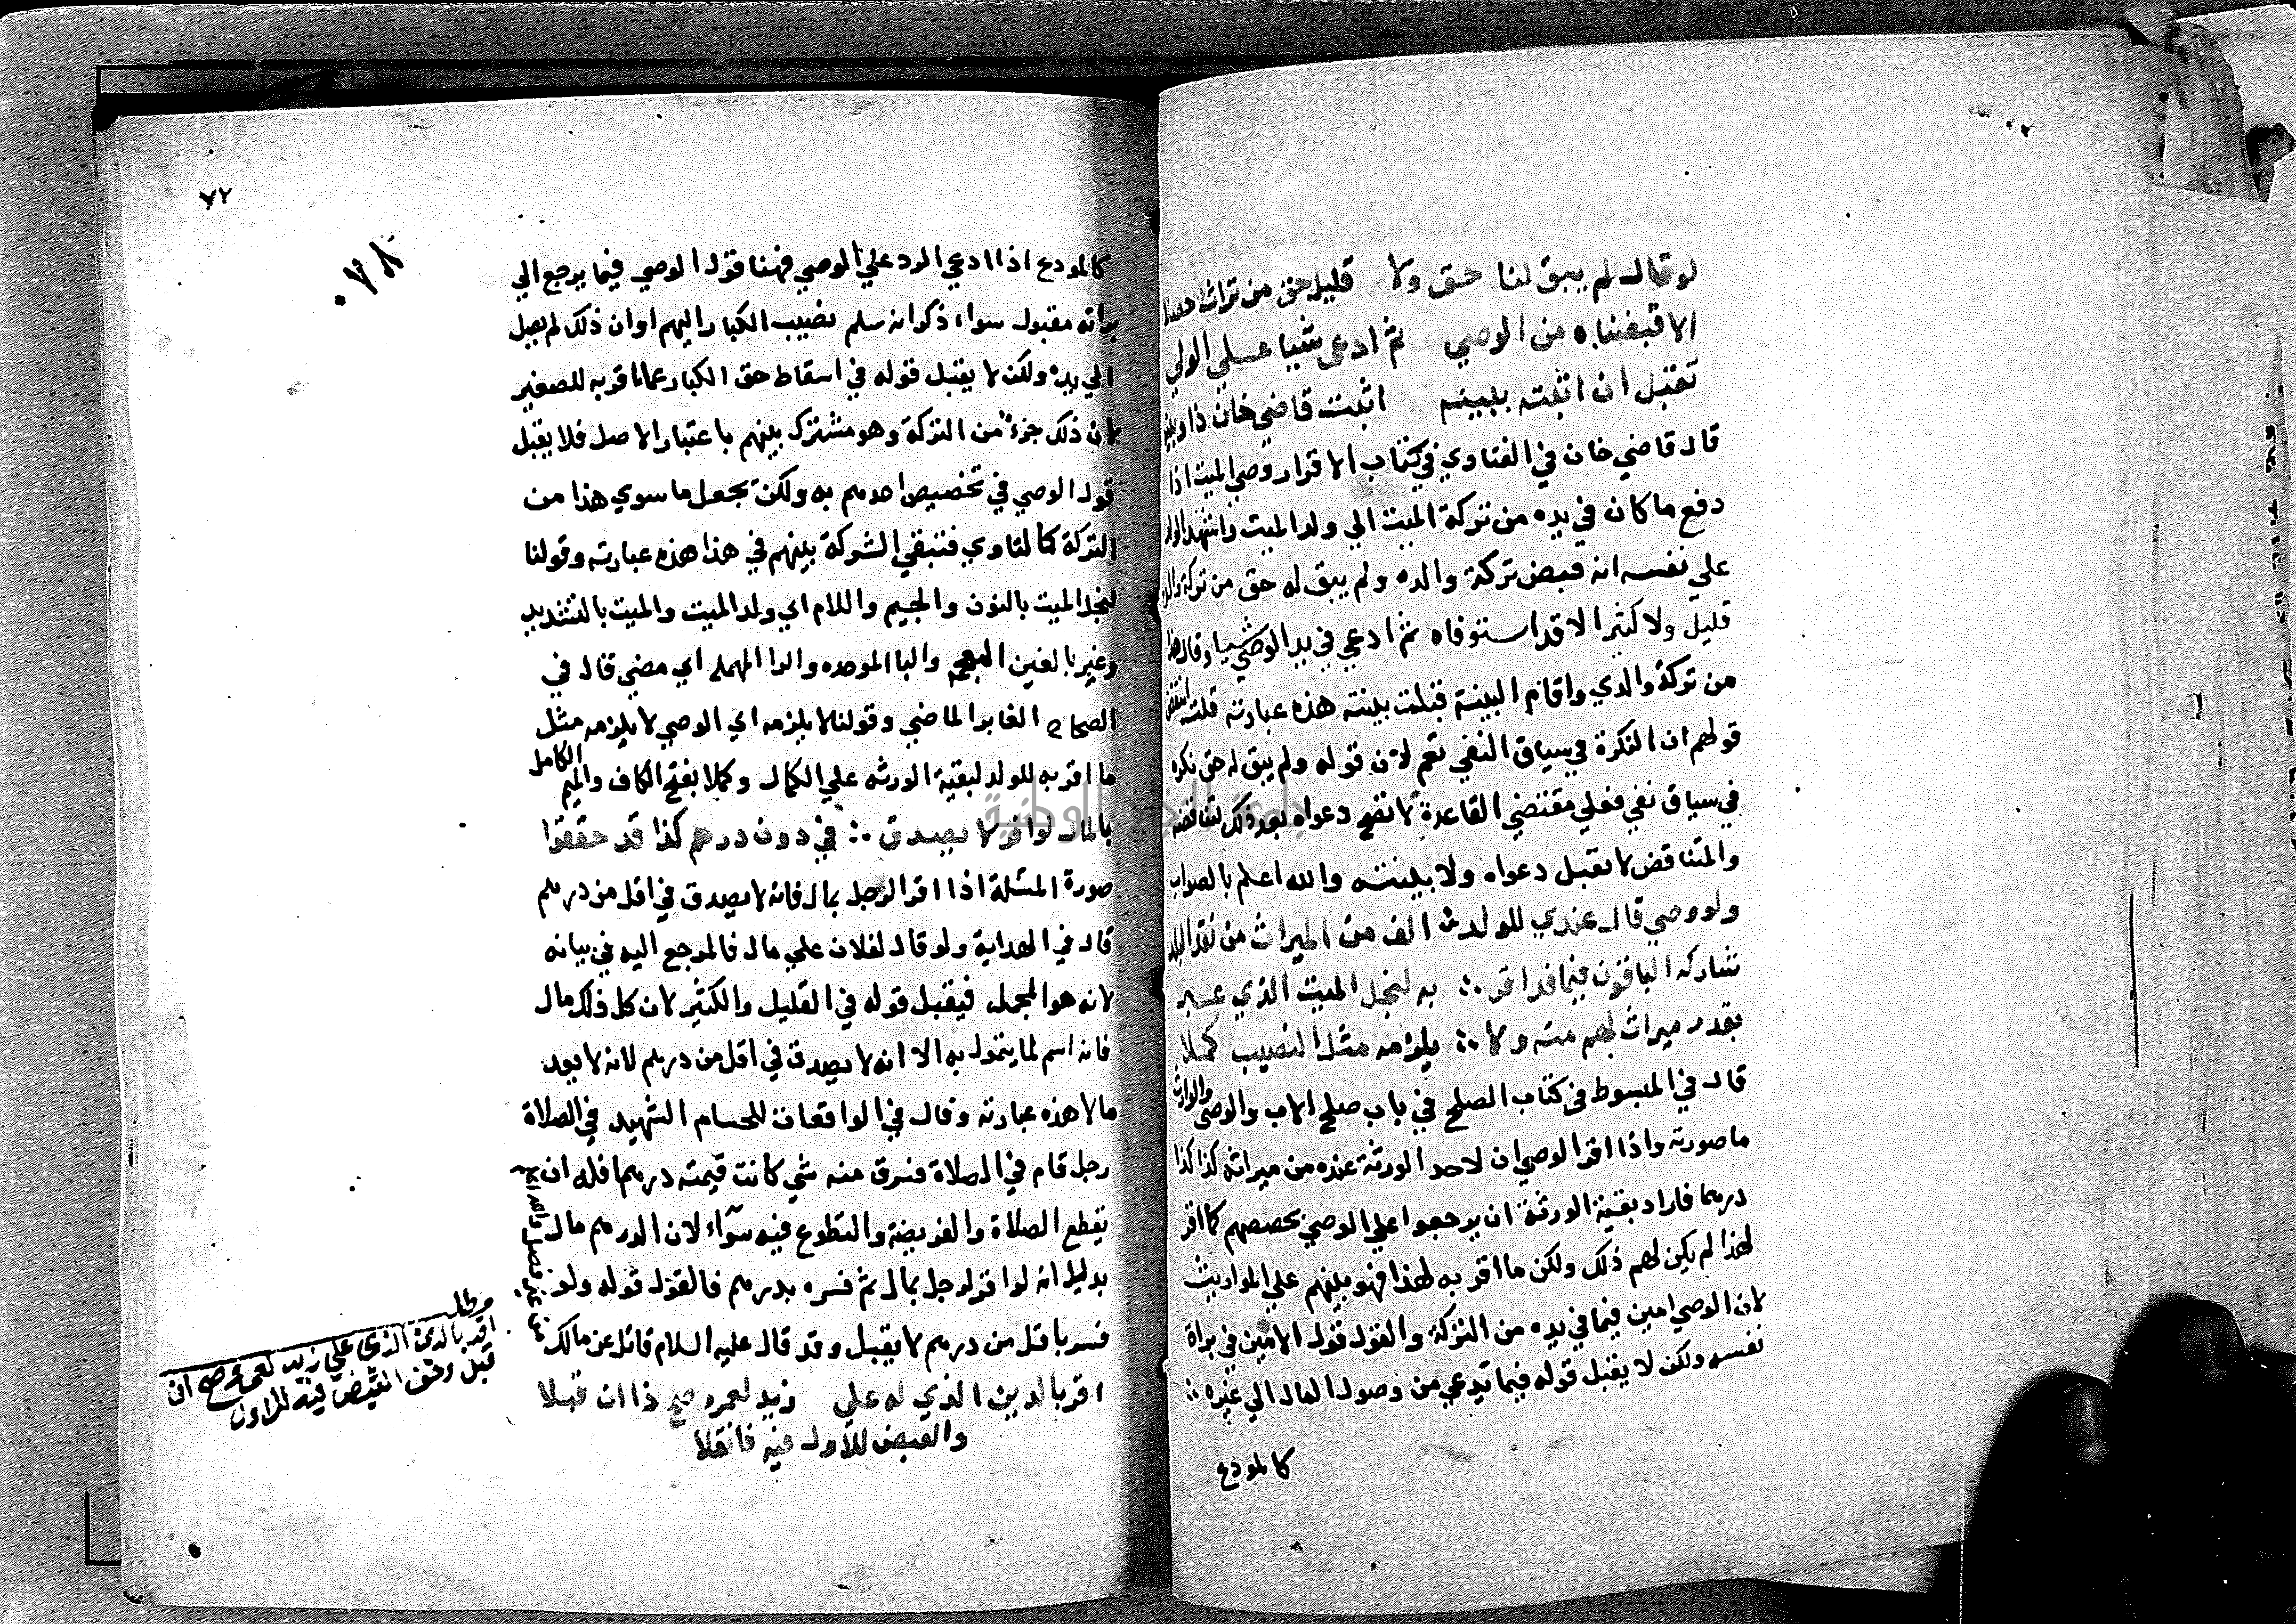 لو قال لم يبق لنا حق ولا قليل حق من تراث حصلا
الا قبضناه من الوصي ثم ادعى شيا على الولي
تقبل ان اثبته ببينه اثبت قاضي خان ذا
قال قاضي خان في الفتاوي في كتاب الاقرار وصي الميت اذا
دفع ما كان في يده من تركة الميت الي ولد الميت واشهد الولد
علي نفسه انه قبض تركة والده ولم يبق له حق من تركة والده
قليل ولا كثير الا قد استوفاه ثم ادعي في يد الوصي شيا وقال هذا
من تركة والدي واقام البينة قبلت بينته هذه عبارته قلت انتقض
قولهم ان النكرة في سياق النفي تعم لان قوله ولم يبق له حق نكره
في سياق نفي فعلي مقتضي القاعدة لا تصح دعواه بعد ذلك لتناقضه
والمتناقض لا تقبل دعواه ولا بينته والله اعلم بالصواب
ولو وصي قال عندي للولد الف من الميراث من نقد البلد
تشاركه الباقون فيما قد اقر به لنجل الميت الذي غبر
بقدر ميراث لهم منه ولا يلزمه مثل النصيب كملا
قال في المبسوط في كتاب الصلح في باب صلح الاب والوصي والوارث
ما صورته واذا اقر الوصي ان لاحد الورثة عنده من ميراثه كذا كذا
درهما فاراد بقية الورثة ان يرجعوا علي الوصي بحصصهم كما اقر
لهذا لم يكن لهم ذلك ولكن ما اقر به لهذا فهو بينهم علي المواريث
لان الوصي امين فيما في يده من التركة والقول قول الامين في براة
نفسه ولكن لا يقبل قوله فيما يدعي من وصول المال الي غيره
كالمودع
٧٢
٠٧٨
كالمودع اذا ادعي الرد علي الوصي فهنا قول الوصي فيما يرجع الي
براته مقبول سواء ذكر انه سلم نصيب الكبار اليهم او ان ذلك لم يصل
الي يده ولكن لا يقبل قوله في اسقاط حق الكبار عما اقر به للصغير
لان ذلك جزء من التركة وهو مشترك بينهم باعتبار الاصل فلا يقبل
قول الوصي في تخصيص احدهم به ولكن يجعل ما سوي هذا من
التركة كالتاوي فتبقي الشركة بينهم في هذا هذه عبارته وقولنا
لنجل الميت بالنون والجيم واللام اي ولد الميت والميت بالتشديد
وغبر بالغين المعجمه والبا الموحده والرا المهمله اي مضي قال في
الصحاح الغابر الماضي وقولنا لا يلزمه اي الوصي لا يلزمه مثل
ما اقر به للولد لبقية الورثه علي الكمال وكملا بفتح الكاف والميم الكامل
بالمال لو اقر لا يصدق في دون درهم كذا قد حققوا
صورة المسئلة اذا اقر الرجل بمال فانه لا يصدق في اقل من درهم
قال في الهداية ولو قال لفلان علي مال فالمرجع اليه في بيانه
لانه هو المجمل فيقبل قوله في القليل والكثير لان كل ذلك مال
فانه اسم لما يتمول به الا انه لا يصدق في اقل من درهم لانه لا يعد
مالا هذه عبارته وقال في الواقعات للحسام الشهيد في الصلاة
رجل قام في الصلاة فسرق منه شي كانت قيمته درهما فله ان
يقطع الصلاة والفريضة والتطوع فيه سواء لان الدرهم مال
بدليل انه لو اقر لرجل بمال ثم فسره بدرهم فالقول قوله ولو
فسر باقل من درهم لا يقبل وقد قال عليه السلام قاتل عن مالك
اقر بالدين الذي له على زيد لعمرو صح ذا ان قبلا
والقبض للاول فيه فانقلا
مطلب
اقر بالدين الذي علي زيد لعمرو صح ان
قبل وحق القبض فيه للاول